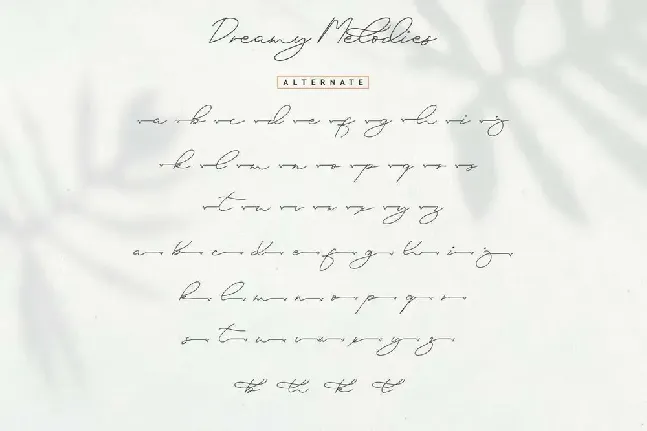 Dreamy Melodies
ALTERNATE
a b c d e f g h i j
k l m n o p q r s
t u v w x y z
a b c d e f g h i j
k l m n o p q r
s t u v w x y z
th